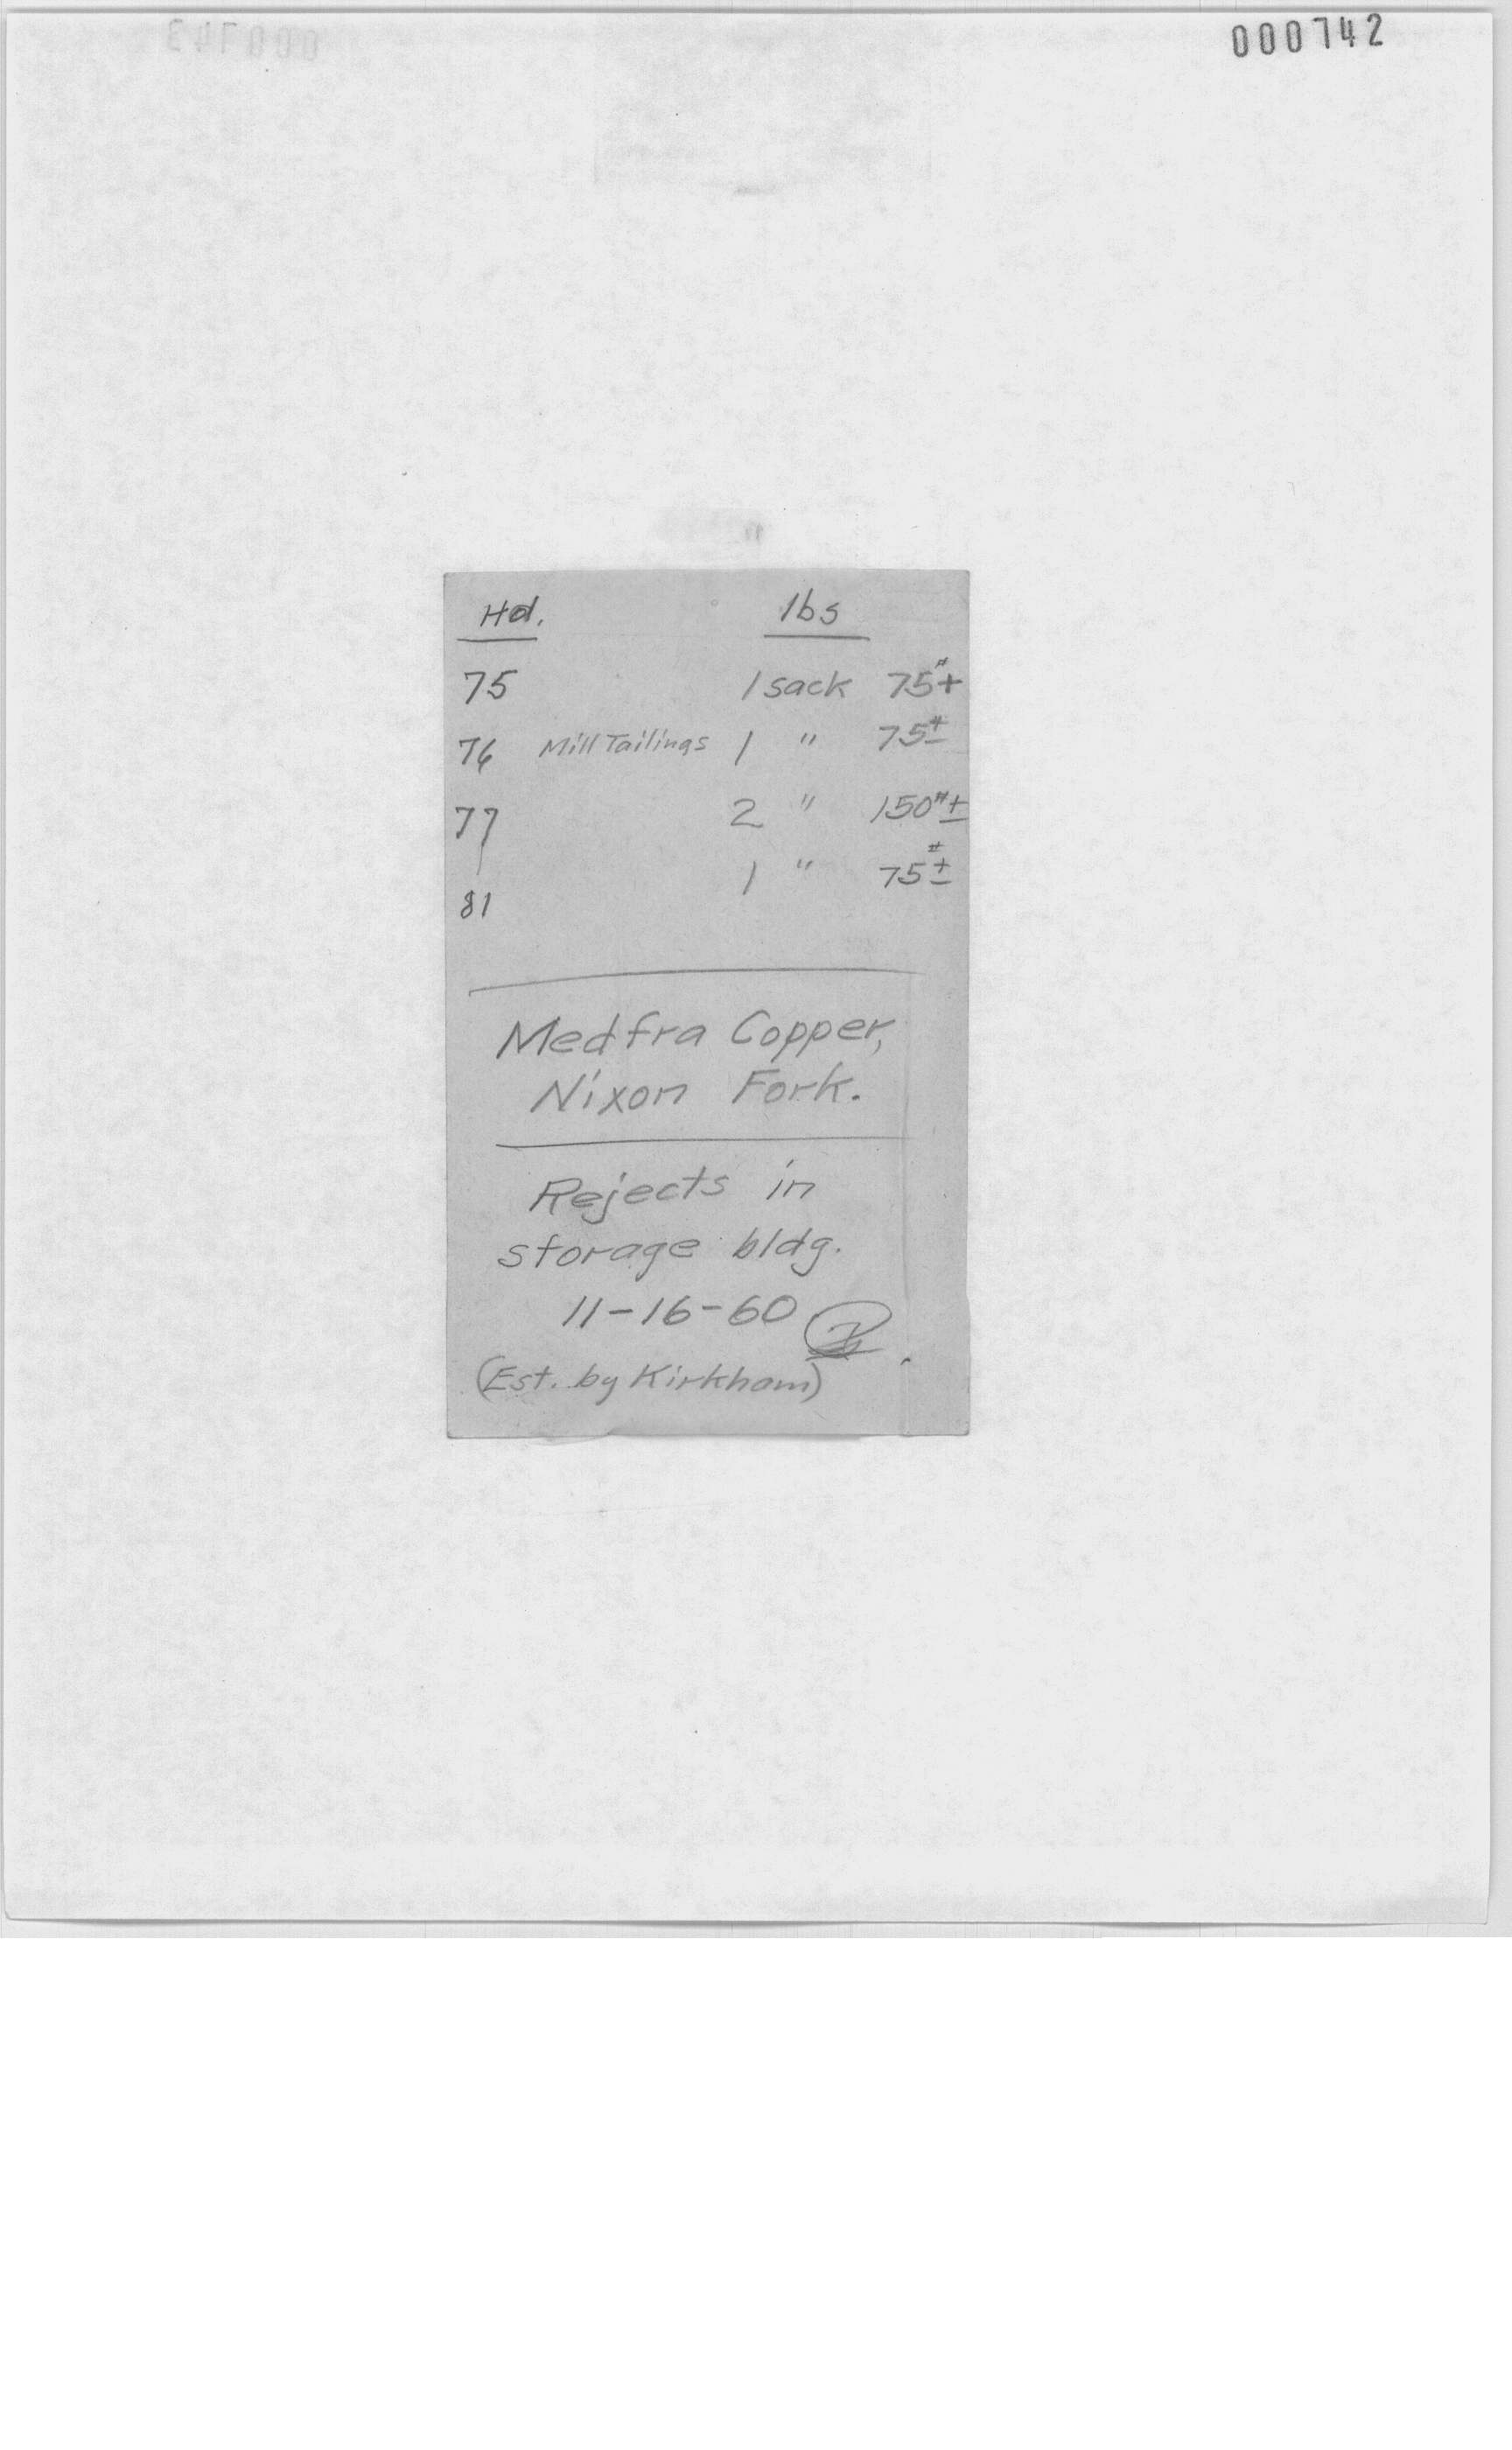 000742
Hd. lbs
75 1 sack 75#±
76 Mill Tailings 1 " 75#±
77 2 " 150#±
1 " 75#±
81
Medfra Copper,
Nixon Fork.
Rejects in
storage bldg.
11-16-60
(Est. by Kirkham)